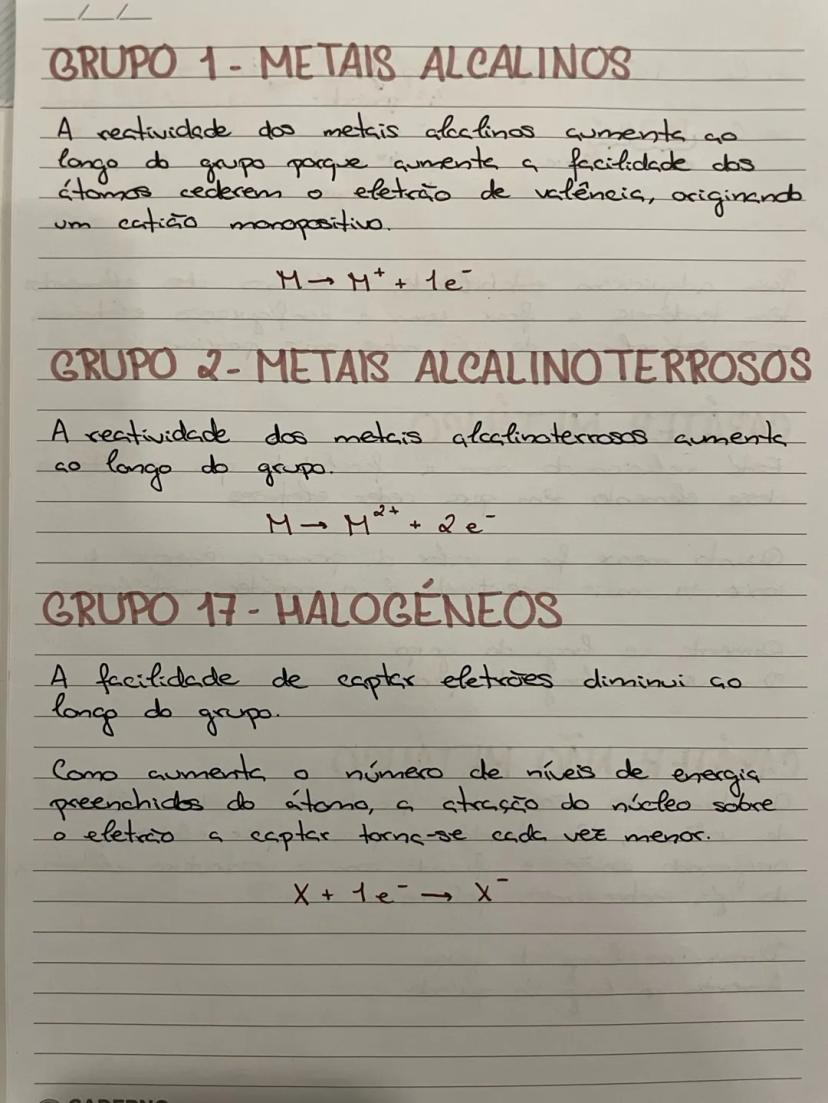 GRUPO 1 - METAIS ALCALINOS
A reatividade dos metais alcalinos aumenta ao
longo do grupo porque aumenta a facilidade dos
átomos cederem o eletrão de valência, originando
um catião monopositivo.
M → M⁺ + 1e⁻
GRUPO 2 - METAIS ALCALINOTERROSOS
A reatividade dos metais alcalinoterrosos aumenta
ao longo do grupo.
M → M²⁺ + 2e⁻
GRUPO 17 - HALOGÉNEOS
A facilidade de captar eletrões diminui ao
longo do grupo.
Como aumenta o número de níveis de energia
preenchidos do átomo, a atração do núcleo sobre
o eletrão a captar torna-se cada vez menor.
X + 1e⁻ → X⁻